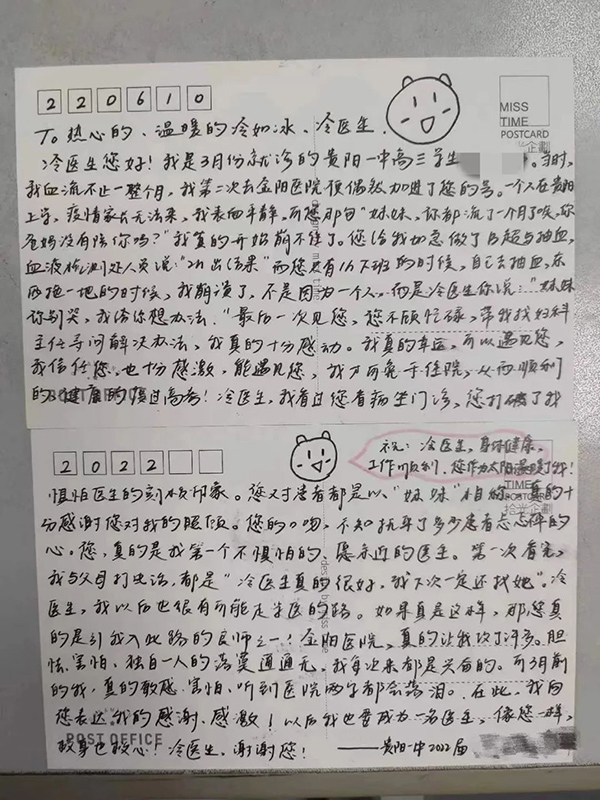 220610
To 热心的、温暖的冷如冰、冷医生.
MISS
TIME
POSTCARD
企劃
冷医生您好!我是3月份就诊的贵阳一中高三学生 。当时,
我血流不止一整个月,我第二次去金阳医院很偶然加进了您的号。一个人在贵阳
上学,疫情家长无法来,我表面平静,而您那句"妹妹,你都流了一个月了哎,你
爸妈没有陪你吗?"我真的开始崩不住了。您给我加急做了B超与抽血,
血液检测处人员说:"2h出结果"而您只有1h下班的时候,自己去抽血,东
西拖一地的时候,我崩溃了,不是因为一个人,而是冷医生你说:"妹妹
你别哭,我给你想办法."最后一次见您,您不顾忙碌,带我找妇科
主任寻问解决办法,我真的十分感动。我真的幸运,可以遇见您,
我信任您.也十分感激,能遇见您,我才可免于住院,从而顺利
的 健康的度过高考!冷医生,我看过您看病坐门诊,您打破了我
2022
祝:冷医生,身体健康,
工作顺利.您作为太阳温暖了我!
TIME
POSTCARD
拾光企劃
惧怕医生的刻板印象。您对患者都是以"妹妹"相称,真的十
分感谢您对我的照顾。您的叮吻,不知抚平了多少患者忐忑的
心。您,真的是我第一个不惧怕的、愿亲近的医生。第一次看完,
我与父母打电话,都是"冷医生真的很好,我下次一定还找她"。冷
医生,我以后也很有可能走学医的路。如果真是这样,那您真
的是引我入此路的良师之一!金阳医院,真的让我改了许多。胆
怯、害怕、独自一人的落寞通通无,我每次来都是笑着的。而3月前
的我,真的敏感、害怕、听到医院两字都会落泪。在此,我向
您表达我的感谢、感激!以后我也要成为一名医生,像您一样,
救身也救心!冷医生,谢谢您! ——贵阳一中2022届
POST OFFICE